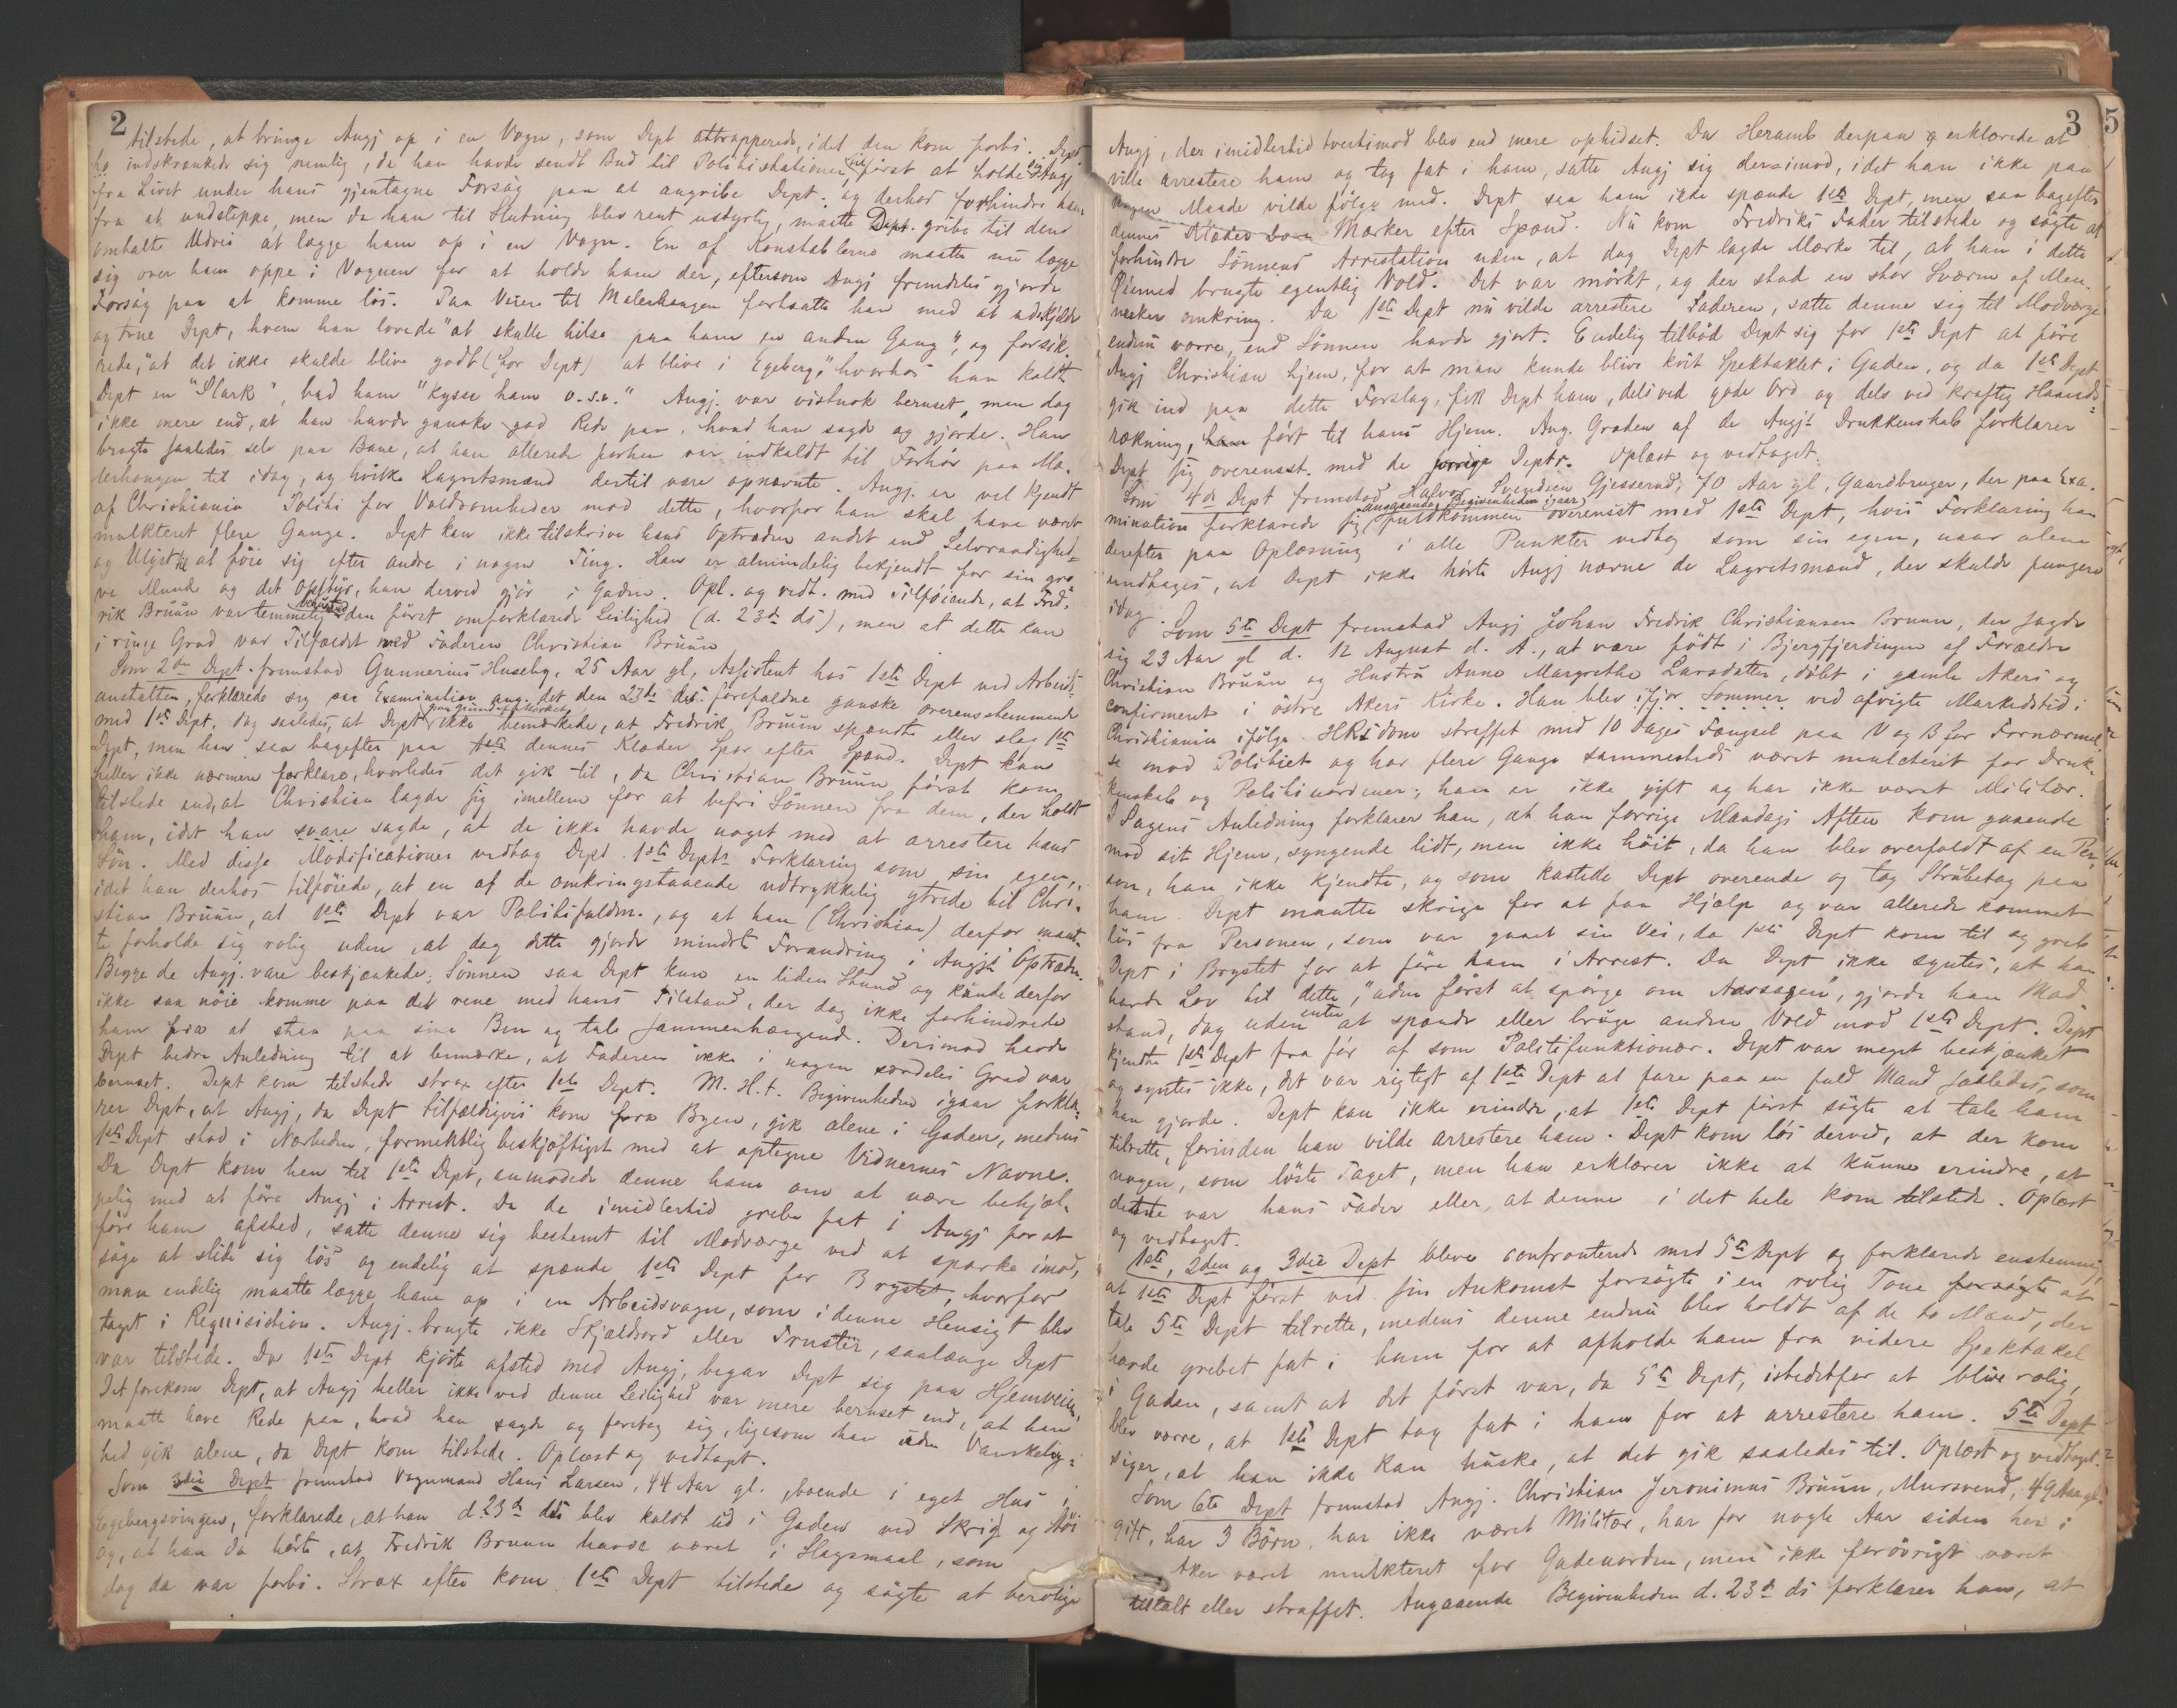 2
tilstede, at bringe Angj op i en Vogn, som Dept attrapperede, idet den kom forbi. Dept
indskrænkede sig nemlig, da han havde sendt Bud til Politistationen, til först at holde Angj
fra Livet under hans gjentagne Forsög paa at angribe Dept. og derhos forhindre ham
fra at undslippe, men da han til Slutning blev rent ustyrlig, maatte Dept. gribe til den
omhalte Udvei at lægge ham op i en Vogn. En af Konstablerne maatte nu lægge
sig over ham oppe i Vognen for at holde ham der, eftersom Angj fremdeles gjorde
Forsög paa at komme lös. Paa Veien til Malerhaugen fortsatte han med at udskjelde
og true Dept, hvem han lovede "at skulle hilse paa ham en anden Gang", og forsik-
rede, "at det ikke skulde blive godt (for Dept) at blive i Egeberg", hvorhos han kaldte
Dept en "Slark", bad ham "kysse ham o.s.v." Angj. var vistnok beruset, men dog
ikke mere end, at han havde ganske god Rede paa, hvad han sagde og gjorde. Han
bragte saaledes selv paa Bane, at han allerede forhen var indkaldt til Forhör paa Ma-
lerhaugen til idag, og hvilke Lagretsmænd dertil vare opnævnte. Angj. er vel kjendt
af Christiania Politi for Voldsomheder mod dette, hvorfor han skal have været
mulkteret flere Gange. Dept kan ikke tilskrive hans Optræden andet end Selvraadighed
og Ulyst til at föie sig efter andre i nogen Ting. Han er almindelig bekjendt for sin gro-
ve Mund og det Opstyr, han derved gjör i Gaden. Opl. og vedt. med Tilföiende, at Fred-
rik Bruun var temmelig beruset ved den först omforklarede Leilighed (d. 23de ds), men at dette kun
i ringe Grad var Tilfældet med Faderen Christian Bruun
Som 2den Dept. fremstod Gunnerius Huseby, 25 Aar gl, Assistent hos 1ste Dept ved Arbeids-
anstalten, forklarede sig paa Examination ang. det den 23de ds. forefaldne ganske overensstemmende
med 1ste Dept, dog saaledes, at Dept paa Grund af Mörket ikke bemærkede, at Fredrik Bruun spændte eller slog 1ste
Dept, men han saa bagefter paa dennes Klæder Spor efter Spænd. Dept kan
heller ikke nærmere forklare, hvorledes det gik til, da Christian Bruun först kom
tilstede end, at Christian lagde sig imellem for at befri Sönnen fra dem, der holdt
ham, idet han svare sagde, at de ikke havde noget med at arrestere hans
Sön. Med disse Modificationer vedtog Dept 1ste Depts Forklaring som sin egen,
idet han derhos tilföiede, at en af de omkringstaaende udtrykkelig ytrede til Chri-
stian Bruun, at 1ste Dept var Politifuldm., og at han (Christian) derfor maat-
te forholde sig rolig uden, at dog dette gjorde mindste Forandring i Angjs Optræden.
Begge de Angj. vare beskjænkede; Sönnen saa Dept kun en liden Stund og kunde derfor
ikke saa nöie komme paa det rene med hans Tilstand, der dog ikke forhindrede
ham fra at staa paa sine Ben og tale sammenhængende. Derimod havde
Dept bedre Anledning til at bemærke, at Faderen ikke i nogen særdeles Grad var
beruset. Dept kom tilstede strax efter 1ste Dept. M. H. t. Begivenheden igaar forkla-
rer Dept, at Angj, da Dept tilfældigviis kom fra Byen, gik alene i Gaden, medens
1ste Dept stod i Nærheden, formentlig beskjæftiget med at optegne Vidnernes Navne.
Da Dept kom hen til 1ste Dept, anmodede denne ham om at være behjæl-
pelig med at före Angj i Arrest. Da de imidlertid greb fat i Angj for at
före ham afsted, satte denne sig bestemt til Modværge ved at sparke imod,
söge at slide sig lös og endelig at spænde 1ste Dept for Brystet, hvorfor
man endelig maatte lægge ham op i en Arbeidsvogn, som i denne Hensigt blev
taget i Requisition. Angj. brugte ikke Skjældsord eller Trusler, saalænge Dept
var tilstede. Da 1ste Dept kjörte afsted med Angj, begav Dept sig paa Hjemveien.
Det forekom Dept, at Angj heller ikke ved denne Leilighed var mere beruset end, at han
maatte have Rede paa, hvad han sagde og foretog sig, ligesom han uden Vanskelig-
hed gik alene, da Dept kom tilstede. Oplæst og vedtaget.
Som 3die Dept fremstod Vognmand Hans Larsen, 44 Aar gl. boende i eget Hus i
Egebergsvingen, forklarede, at han d. 23de ds blev kaldt ud i Gaden ved Skrig og Stöi
og, at han da hörte, at Fredrik Bruun havde været i Slagsmaal, som
dog da var forbi. Strax efter kom 1ste Dept tilstede og sögte at berolige
3
Angj, der imidlertid tvertimod blev end mere ophidset. Da Heramb derpaa erklærede at
ville arrestere ham og tog fat i ham, satte Angj sig derimod, idet han ikke paa
nogen Maade vilde fölge med. Dept saa ham ikke spænde 1ste Dept, men saa bagefter
dennes Klæder Mærker efter Spænd. Nu kom Fredriks Fader tilstede og sögte at
forhindre Sönnens Arrestation uden, at dog Dept lagde Mærke til, at han i dette
Öiemed brugte egentlig Vold. Det var mörkt, og der stod en stor Sværm af Men-
nesker omkring. Da 1ste Dept nu vilde arrestere Faderen, satte denne sig til Modværge
endnu værre, end Sönnen havde gjort. Endelig tilböd Dept sig for 1ste Dept at före
Angj Christian hjem, for at man kunde blive kvit Spektaklet i Gaden, og da 1ste Dept
gik ind paa dette Forslag, fik Dept ham, dels ved gode Ord og dels ved kraftig Haands-
rækning, fört til hans Hjem. Ang. Graden af de Angjs Drukkenskab forklarer
Dept sig overensst. med de forrige Deptr. Oplæst og vedtaget.
Som 4de Dept fremstod Halvor Svendsen Gjesserud, 70 Aar gl, Gaardbruger, der paa Exa-
mination forklarede sig angaaende Begivenheden igaar fuldkommen overenset med 1ste Dept, hvis Forklaring han
derefter paa Oplæsning i alle Punkter vedtog som sin egen, naar alene
undtages, at Dept ikke hörte Angj nævne de Lagretsmænd, der skulde fungere
idag.
Som 5te Dept fremstod Angj Johan Fredrik Christiansen Bruun, der sagde
sig 23 Aar gl d. 12 August d. A., at være födt i Bjergfjerdingen af Forældre
Christian Bruun og Hustru Anne Margrethe Larsdatter, döbt i gamle Akers og
confirmeret i östre Akers Kirke. Han blev ifjor Sommer ved afvigte Markedstid i
Christiania ifölge HRsdom straffet med 10 Dages Fængsel paa V og B for Fornærmel-
se mod Politiet og har flere Gange sammesteds været mulcteret for Druk-
kenskab og Politiuordener; han er ikke gift og har ikke været Militær.
I Sagens Anledning forklarer han, at han forrige Mandags Aften kom gaaende
mod sit Hjem, syngende lidt, men ikke höit, da han blev overfaldt af en Per-
son, han ikke kjendte, og som kastede Dept overende og tog Strubetag paa
ham. Dept maatte skrige for at faa Hjælp og var allerede kommet
lös fra Personen, som var gaaet sin Vei, da 1ste Dept kom til og greb
Dept i Brystet for at före ham i Arrest. Da Dept ikke syntes, at han
havde Lov til dette, "uden först at spörge om Aarsagen", gjorde han Mod-
stand, dog uden enten at spænde eller bruge anden Vold mod 1ste Dept. Dept
kjendte 1ste Dept fra för af som Politifunktionær. Dept var meget beskjænket
og syntes ikke, det var rigtigt af 1ste Dept at fare paa en fuld Mand saaledes, som
han gjorde. Dept kan ikke erindre, at 1ste Dept först sögte at tale ham
tilrette, forinden han vilde arrestere ham. Dept kom lös derved, at der kom
nogen, som löste Taget, men han erklærer ikke at kunne erindre, at
dette var hans Fader eller, at denne i det hele kom tilstede. Oplæst
og vedtaget.
1ste, 2den og 3die Dept bleve confronterede med 5te Dept og forklarede enstemmig,
at 1ste Dept först ved sin Ankomst forsögte i en rolig Tone forsögte at
tale 5te Dept tilrette, medens denne endnu blev holdt af de to Mænd, der
havde grebet fat i ham for at afholde ham fra videre Spektakel
i Gaden, samt at det först var, da 5te Dept, istedetfor at blive rolig,
blev værre, at 1ste Dept tog fat i ham for at arrestere ham. 5te Dept
siger, at han ikke kan huske, at det gik saaledes til. Oplæst og vedtaget.
Som 6te Dept fremstod Angj. Christian Jeronimus Bruun, Mursvend, 49 Aar gl.
gift, har 3 Börn, har ikke været Militær, har for nogle Aar siden her i
Aker været mulkteret for Gadeuorden, men ikke forövrigt været
tiltalt eller straffet. Angaaende Begivenheden d. 23de ds forklarer han, at
5